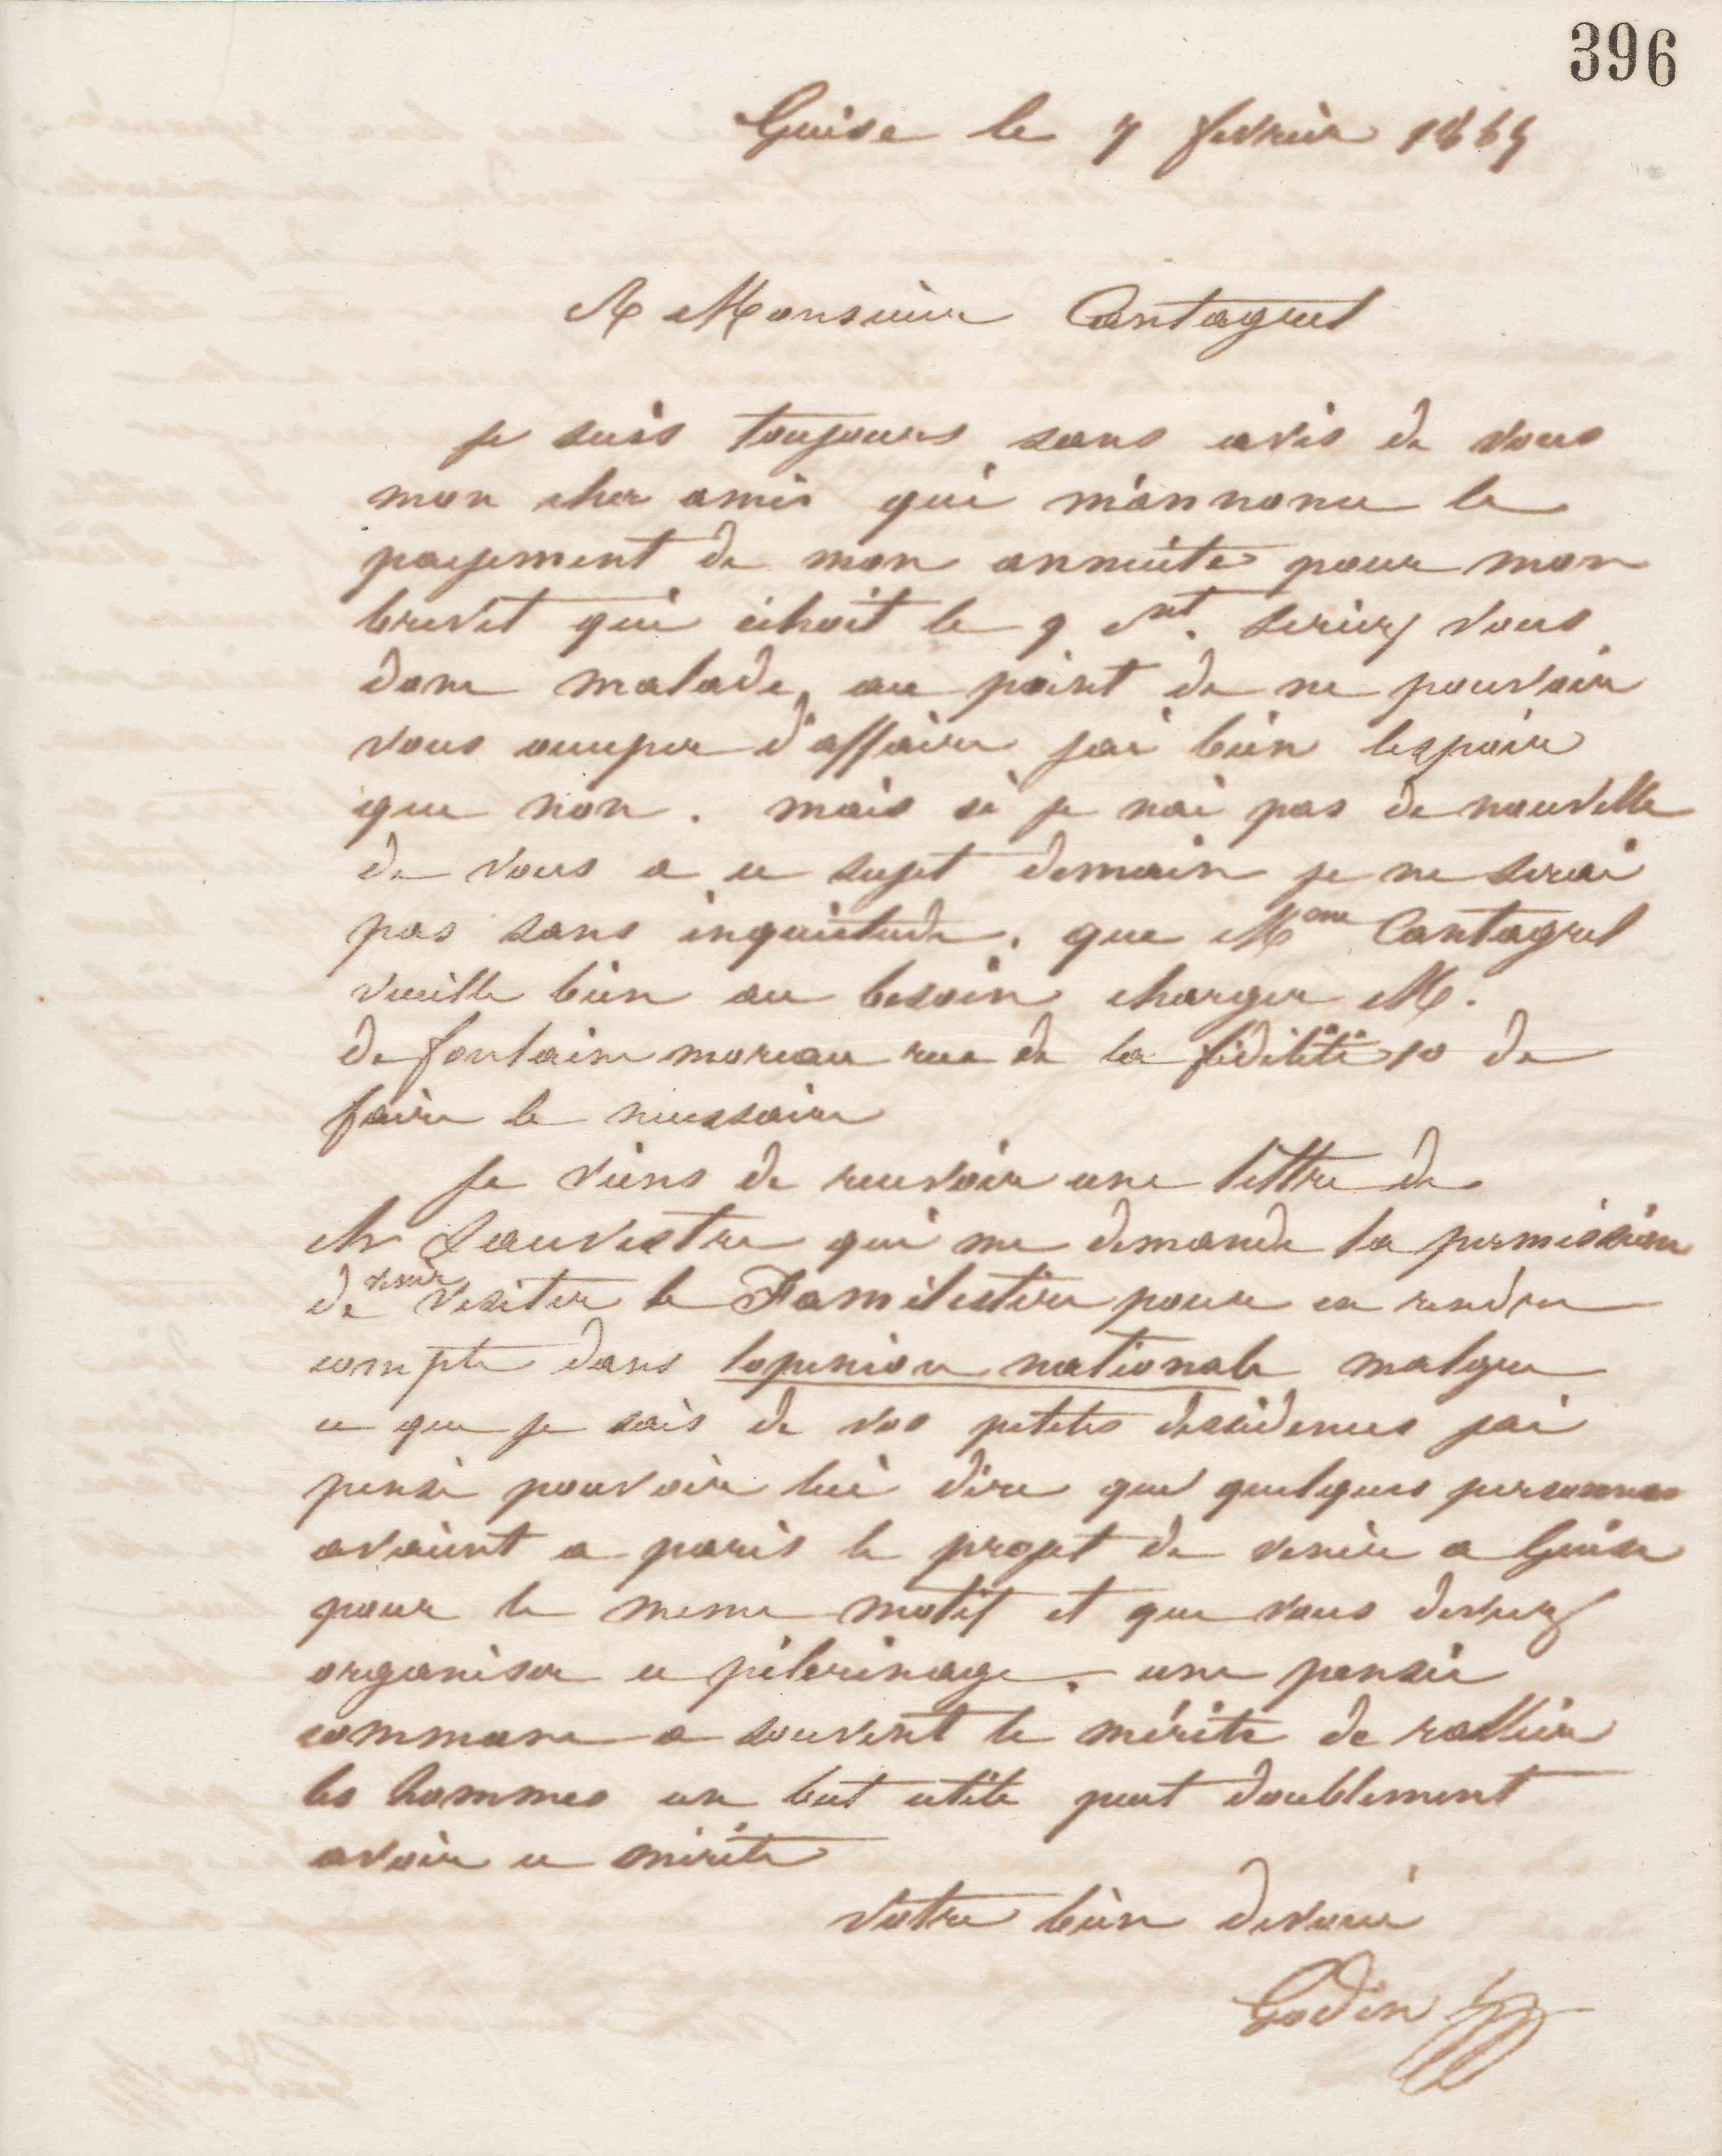 396
Guise le 7 fevrier 1865
A Monsieur Cantagrel
Je suis toujours sans avis de vous
mon cher ami qui m'annonce le
payement de mon annuité pour mon
brevet qui échoit le 9 ct. seriez vous
donc malade, au point de ne pouvoir
vous occuper d'affaire jai bien lespoir
que non. mais si je nai pas de nouvelle
de vous a ce sujet demain je ne serai
pas sans inquiétude. que Mme Cantagrel
veuille bien au besoin charger M.
de fontaine moreau rue de la fidélité 10 de
faire le necessaire
Je viens de recevoir une lettre de
ch Sauvestre qui me demande la permission
de venir visiter le Familistère pour en rendre
compte dans lopinion nationale malgre
ce que je sais de vos petites dissidences jai
pensé pouvoir lui dire que quelques personnes
avaient a paris le projet de venir a Guise
pour le meme motif et que vous deviez
organiser ce pélerinage. une pensée
commune a souvent le mérite de rallier
les hommes un but utile peut doublement
avoir ce mérite
Votre bien devoué
Godin